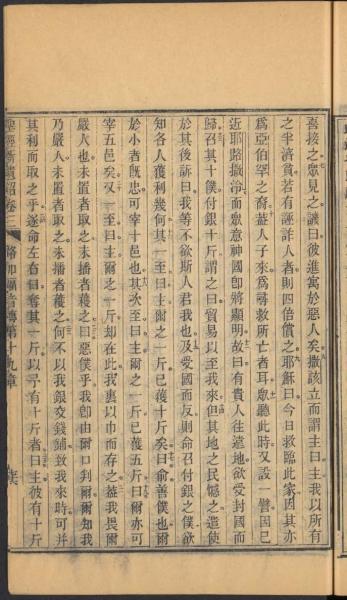 喜接之衆見之譏曰彼進寓於惡人矣撒該立而謂主曰主我以所有
之半濟貧若有誣詐人者則四倍償之耶穌曰今日救臨此家因其亦
爲亞伯罕之裔蓋人子來爲尋救所亡者耳衆聽此時又設一譬因已
近耶路撒冷而衆意神國卽將顯明故曰有貴人往遠地欲受封國而
歸召其十僕付銀十斤謂之曰貿易以至我來但其地之民憾之遣使
於其後訴曰我等不欲斯人君我也及受國而反則命召付銀之僕欲
知各人獲利幾何其一至曰主爾之一斤已獲十斤矣曰俞善僕也爾
於小者旣忠可宰十邑也其次至曰主爾之一斤已獲五斤曰爾亦可
宰五邑矣又一至曰主爾之一斤却在此我裏以巾而存之蓋我畏爾
嚴人也未置者取之未播者穫之曰惡僕乎我卽由爾口判爾爾知我
乃嚴人未置者取之未播者穫之何不以我銀交錢鋪致我來時可并
其利而取之乎遂命左右曰奪其一斤以予有十斤者曰主彼有十斤
聖經新遺詔卷三 路加福音傳第十九章